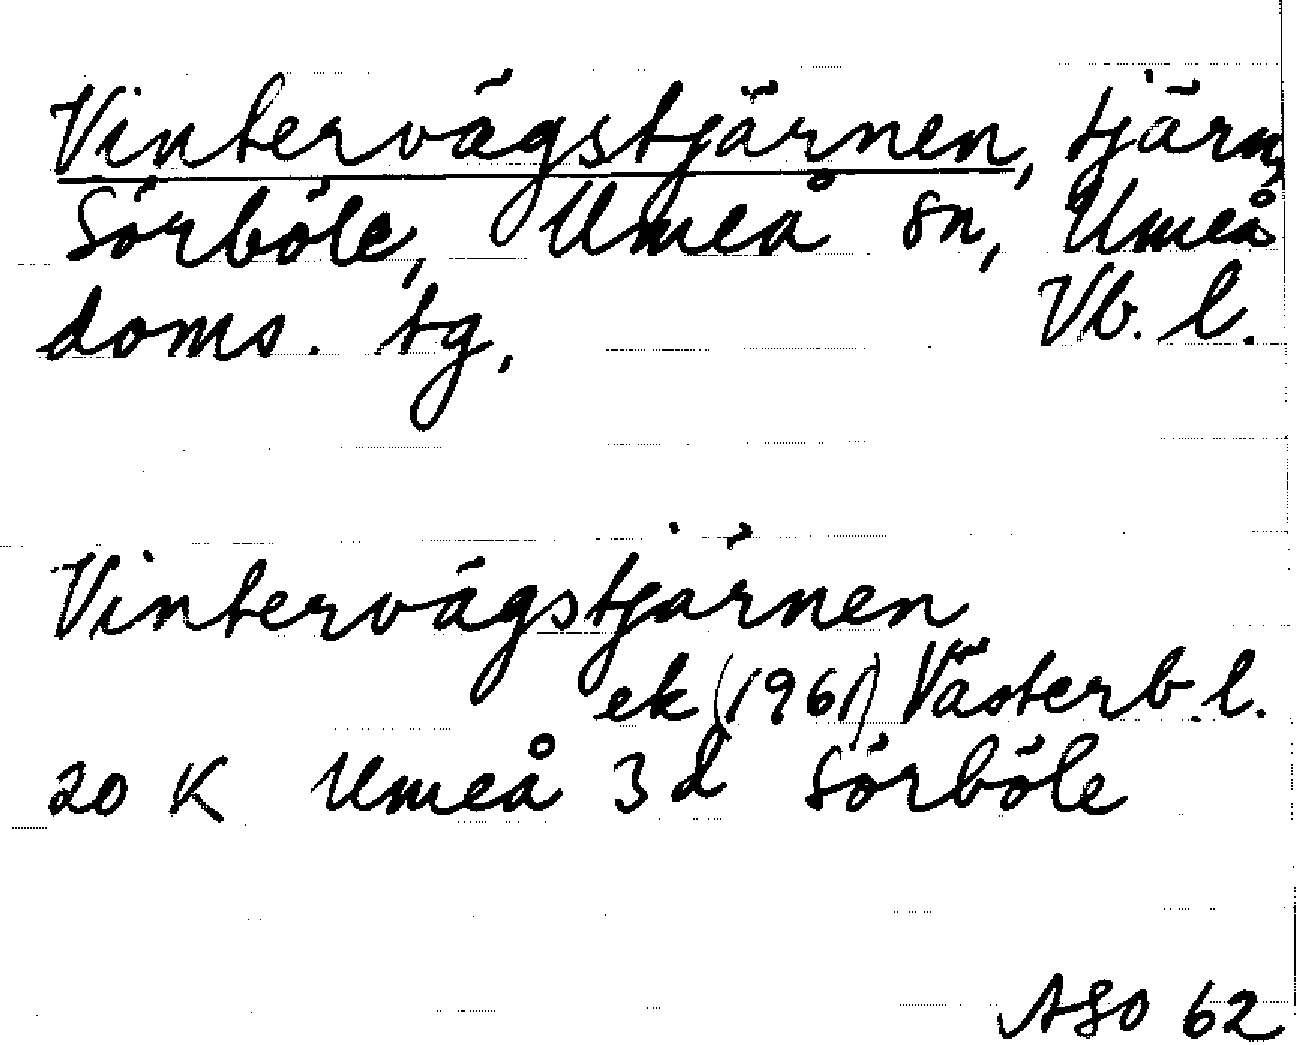 Vintervägstjärnen, tjärn,
Sörböle, Umeå sn, Umeå
doms. tg, Vb. l.
Vintervägstjärnen
ek (1961) Västerb. l.
20 K Umeå 3 d Sörböle
ASO 62